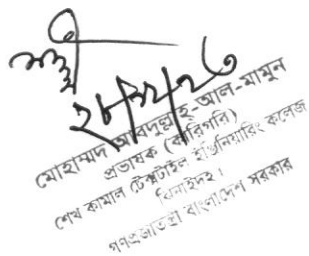 ২৮/১২/২৩
মোহাম্মদ আবদুল্লাহ্-আল-মামুন
প্রভাষক (কারিগরি)
শেখ কামাল টেক্সটাইল ইঞ্জিনিয়ারিং কলেজ
ঝিনাইদহ।
গণপ্রজাতন্ত্রী বাংলাদেশ সরকার